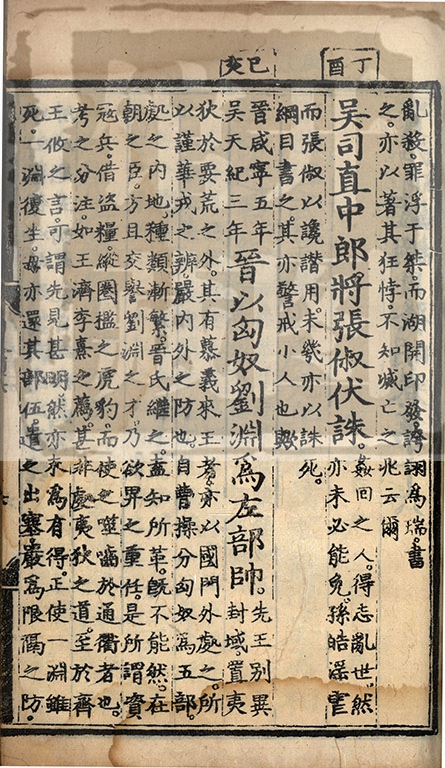 丁酉
亂殺罪浮于桀而湖開印發誇詡爲瑞書
之亦以著其狂悖不知滅亡之兆云爾
吳司直中郎將張俶伏誅姦回之人得志亂世然
亦未必能免孫皓淫虐
而張俶以讒譖用未幾亦以誅死
綱目書之其亦警戒小人也歟
己亥
晉咸寧五年
吳天紀三年
晉以匈奴劉淵爲左部帥先王別異
封域置夷
狄於要荒之外其有慕義來王者亦以國門外處之所
以謹華戎之辨嚴內外之防也自曹操分匈奴爲五部
處之內地種類漸繁晉氏繼之盍知所革旣不能然在
朝之臣方且交譽劉淵之才乃欲畀之重任是所謂資
寇兵借盜糧縱圈檻之虎豹而使之噬齧於通衢者也
考之分注如王濟李憙之薦甚非處夷狄之道至於齊
王攸之言可謂先見甚明然亦未爲有得正使一淵雖
死一淵復生毋亦還其部伍遣之出塞嚴爲限隔之防